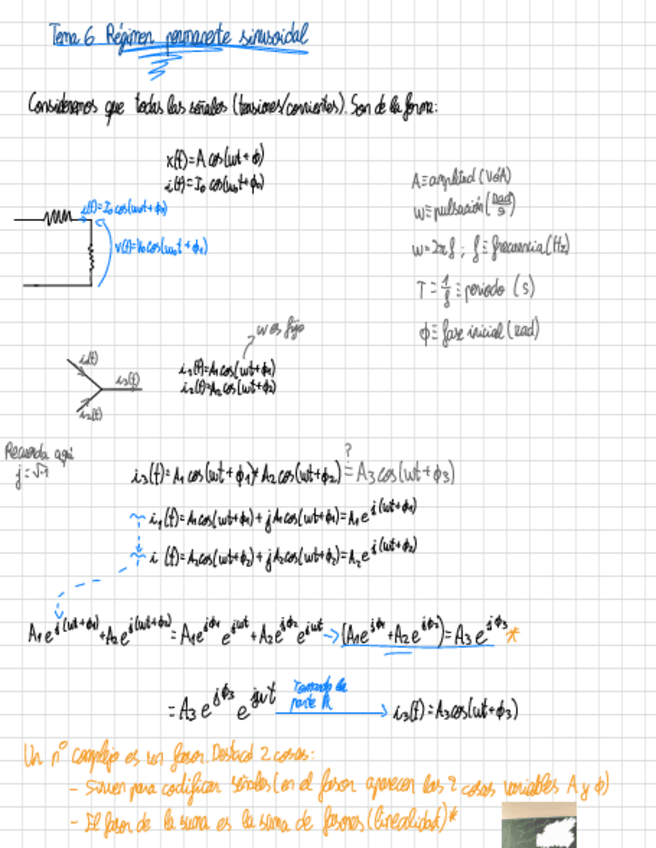 Tema 6 Régimen permanente sinusoidal
Consideramos que todas las señales (tensiones/corrientes). Son de la forma:
x(t)=A cos(ωt+ϕ)
i(t)=I₀ cos(ω₀t+ϕ₀)
A≡amplitud (V o A)
ω≡pulsación (rad/s)
ω=2πf ; f≡frecuencia (Hz)
T=1/f≡periodo (s)
ϕ≡fase inicial (rad)
i(t)=I₀ cos(ω₀t+ϕ₀)
v(t)=V₀ cos(ω₀t+ϕ₁)
ω es fijo
i₁(t)
i₃(t)
i₂(t)
i₁(t)=A₁cos(ωt+ϕ₁)
i₂(t)=A₂cos(ωt+ϕ₂)
Recuerda aquí
j=√-1
i₃(t)=A₁ cos(ωt+ϕ₁)+A₂cos(ωt+ϕ₂)=? A₃cos(ωt+ϕ₃)
ĩ₁(t)=A₁cos(ωt+ϕ₁)+jA₁cos(ωt+ϕ₁)=A₁e^j(ωt+ϕ₁)
ĩ (t)=A₂cos(ωt+ϕ₂)+jA₂cos(ωt+ϕ₂)=A₂e^j(ωt+ϕ₂)
A₁e^j(ωt+ϕ₁)+A₂e^j(ωt+ϕ₂)=A₁e^jϕ₁ e^jωt+A₂e^jϕ₂ e^jωt→(A₁e^jϕ₁+A₂e^jϕ₂)=A₃e^jϕ₃*
=A₃e^jϕ₃ e^jωt Tomando la parte R → i₃(t)=A₃cos(ωt+ϕ₃)
Un nº complejo es un fasor. Destacó 2 cosas:
- Sirven para codificar señales (en el fasor aparecen las 2 cosas variables A y ϕ)
- El fasor de la suma es la suma de fasores (linealidad)*